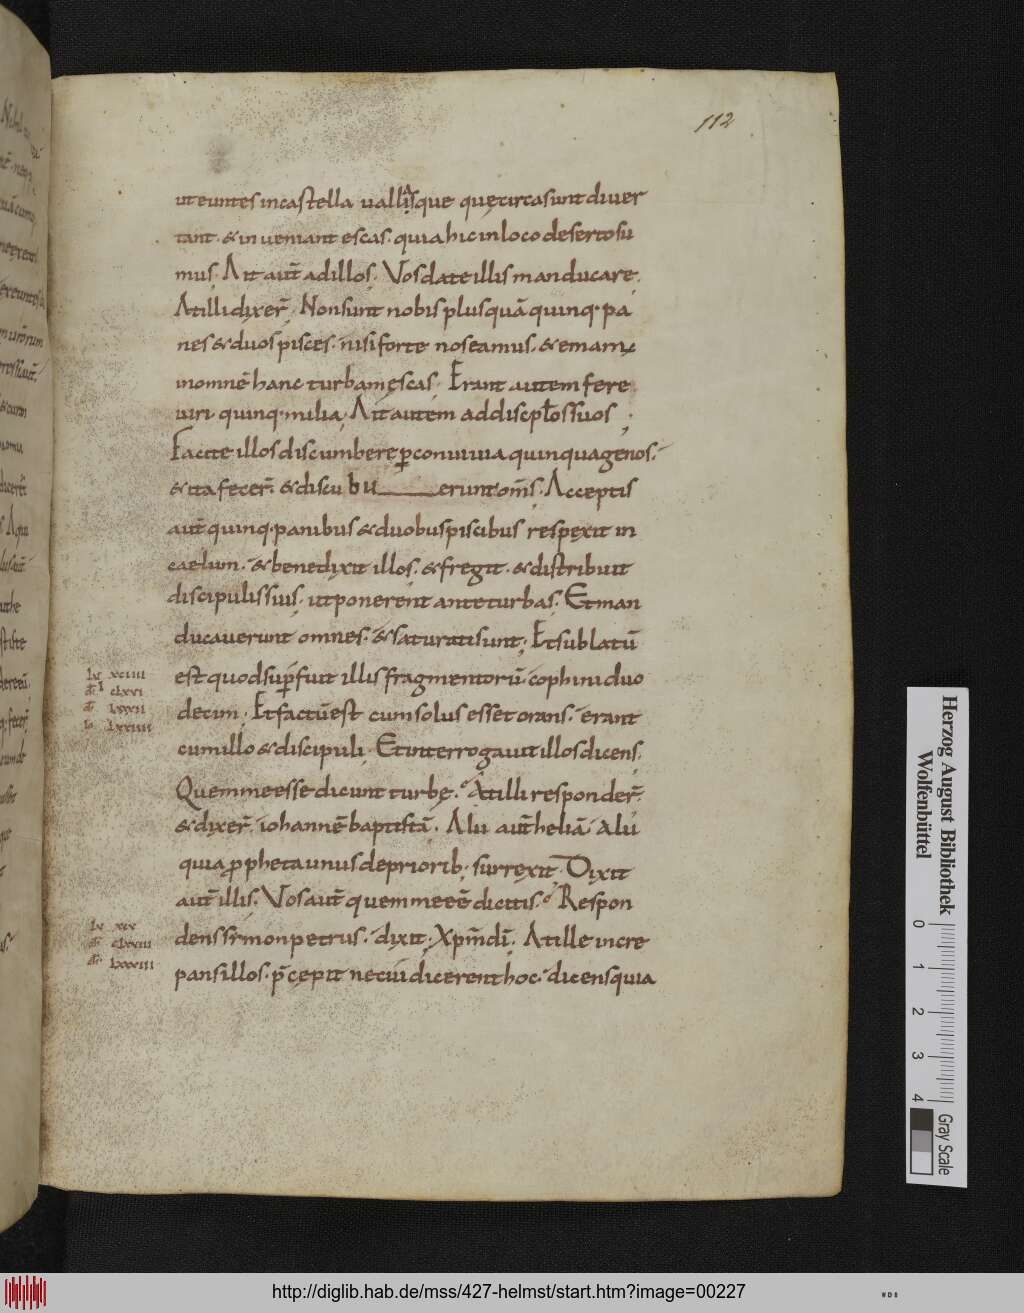 112
ut euntes in castella uallisque quę circa sunt diuer
tant · & inueniant escas · quia hic in loco deserto su
mus · Ait aut̄ ad illos · Vos date illis manducare ·
At illi dixer̄ · Non sunt nobis plus quā quinq· pa
nes & duos pisces · nisi forte nos eamus · & emam;
in omnē hanc turbam ęscas · Erant autem fere
uiri quinq· milia · Ait autem ad discip̄los suos ;
Facite illos discumbere ꝑ conuiuia quinquagenos ·
& ita fecer̄ · & discu bu erunt om̄s · Acceptis
aut̄ quinq· panibus & duobus piscibus respexit in
caelum · & benedixit illos · & fregit · & distribuit
discipulis suis · ut ponerent ante turbas · Et man
ducauerunt omnes · & saturati sunt · Et sublatū
est quod suꝑfuit illis fragmentorū · cophini duo
decim · Et factū est cum solus esset orans · erant
cum illo & discipuli · Et interrogauit illos dicens ·
Quem me esse dicunt turbę · At illi responder̄ ·
& dixer̄ · iohannē baptistā · Alii aut̄ heliā · Alii
quia ꝓpheta unus de priorib; surrexit · Dixit
aut̄ illis · Vos aut̄ quem me eē dicitis · Respon
dens simon petrus · dixit · Xp̄m dī · At ille incre
pans illos · p̄cepit ne cui dicerent hoc · dicens quia
lx xciiii
clxvi
lxxxii
lxxiiii
lx xcv
clxviii
lxxxiii
Herzog August Bibliothek
Wolfenbüttel
0 1 2 3 4
Gray Scale
http://diglib.hab.de/mss/427-helmst/start.htm?image=00227